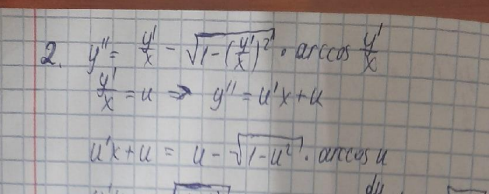 2. y'' = y'/x - √(1-(y'/x)²) · arccos y'/x
y'/x = u ⇒ y'' = u'x+u
u'x+u = u - √(1-u²) · arccos u